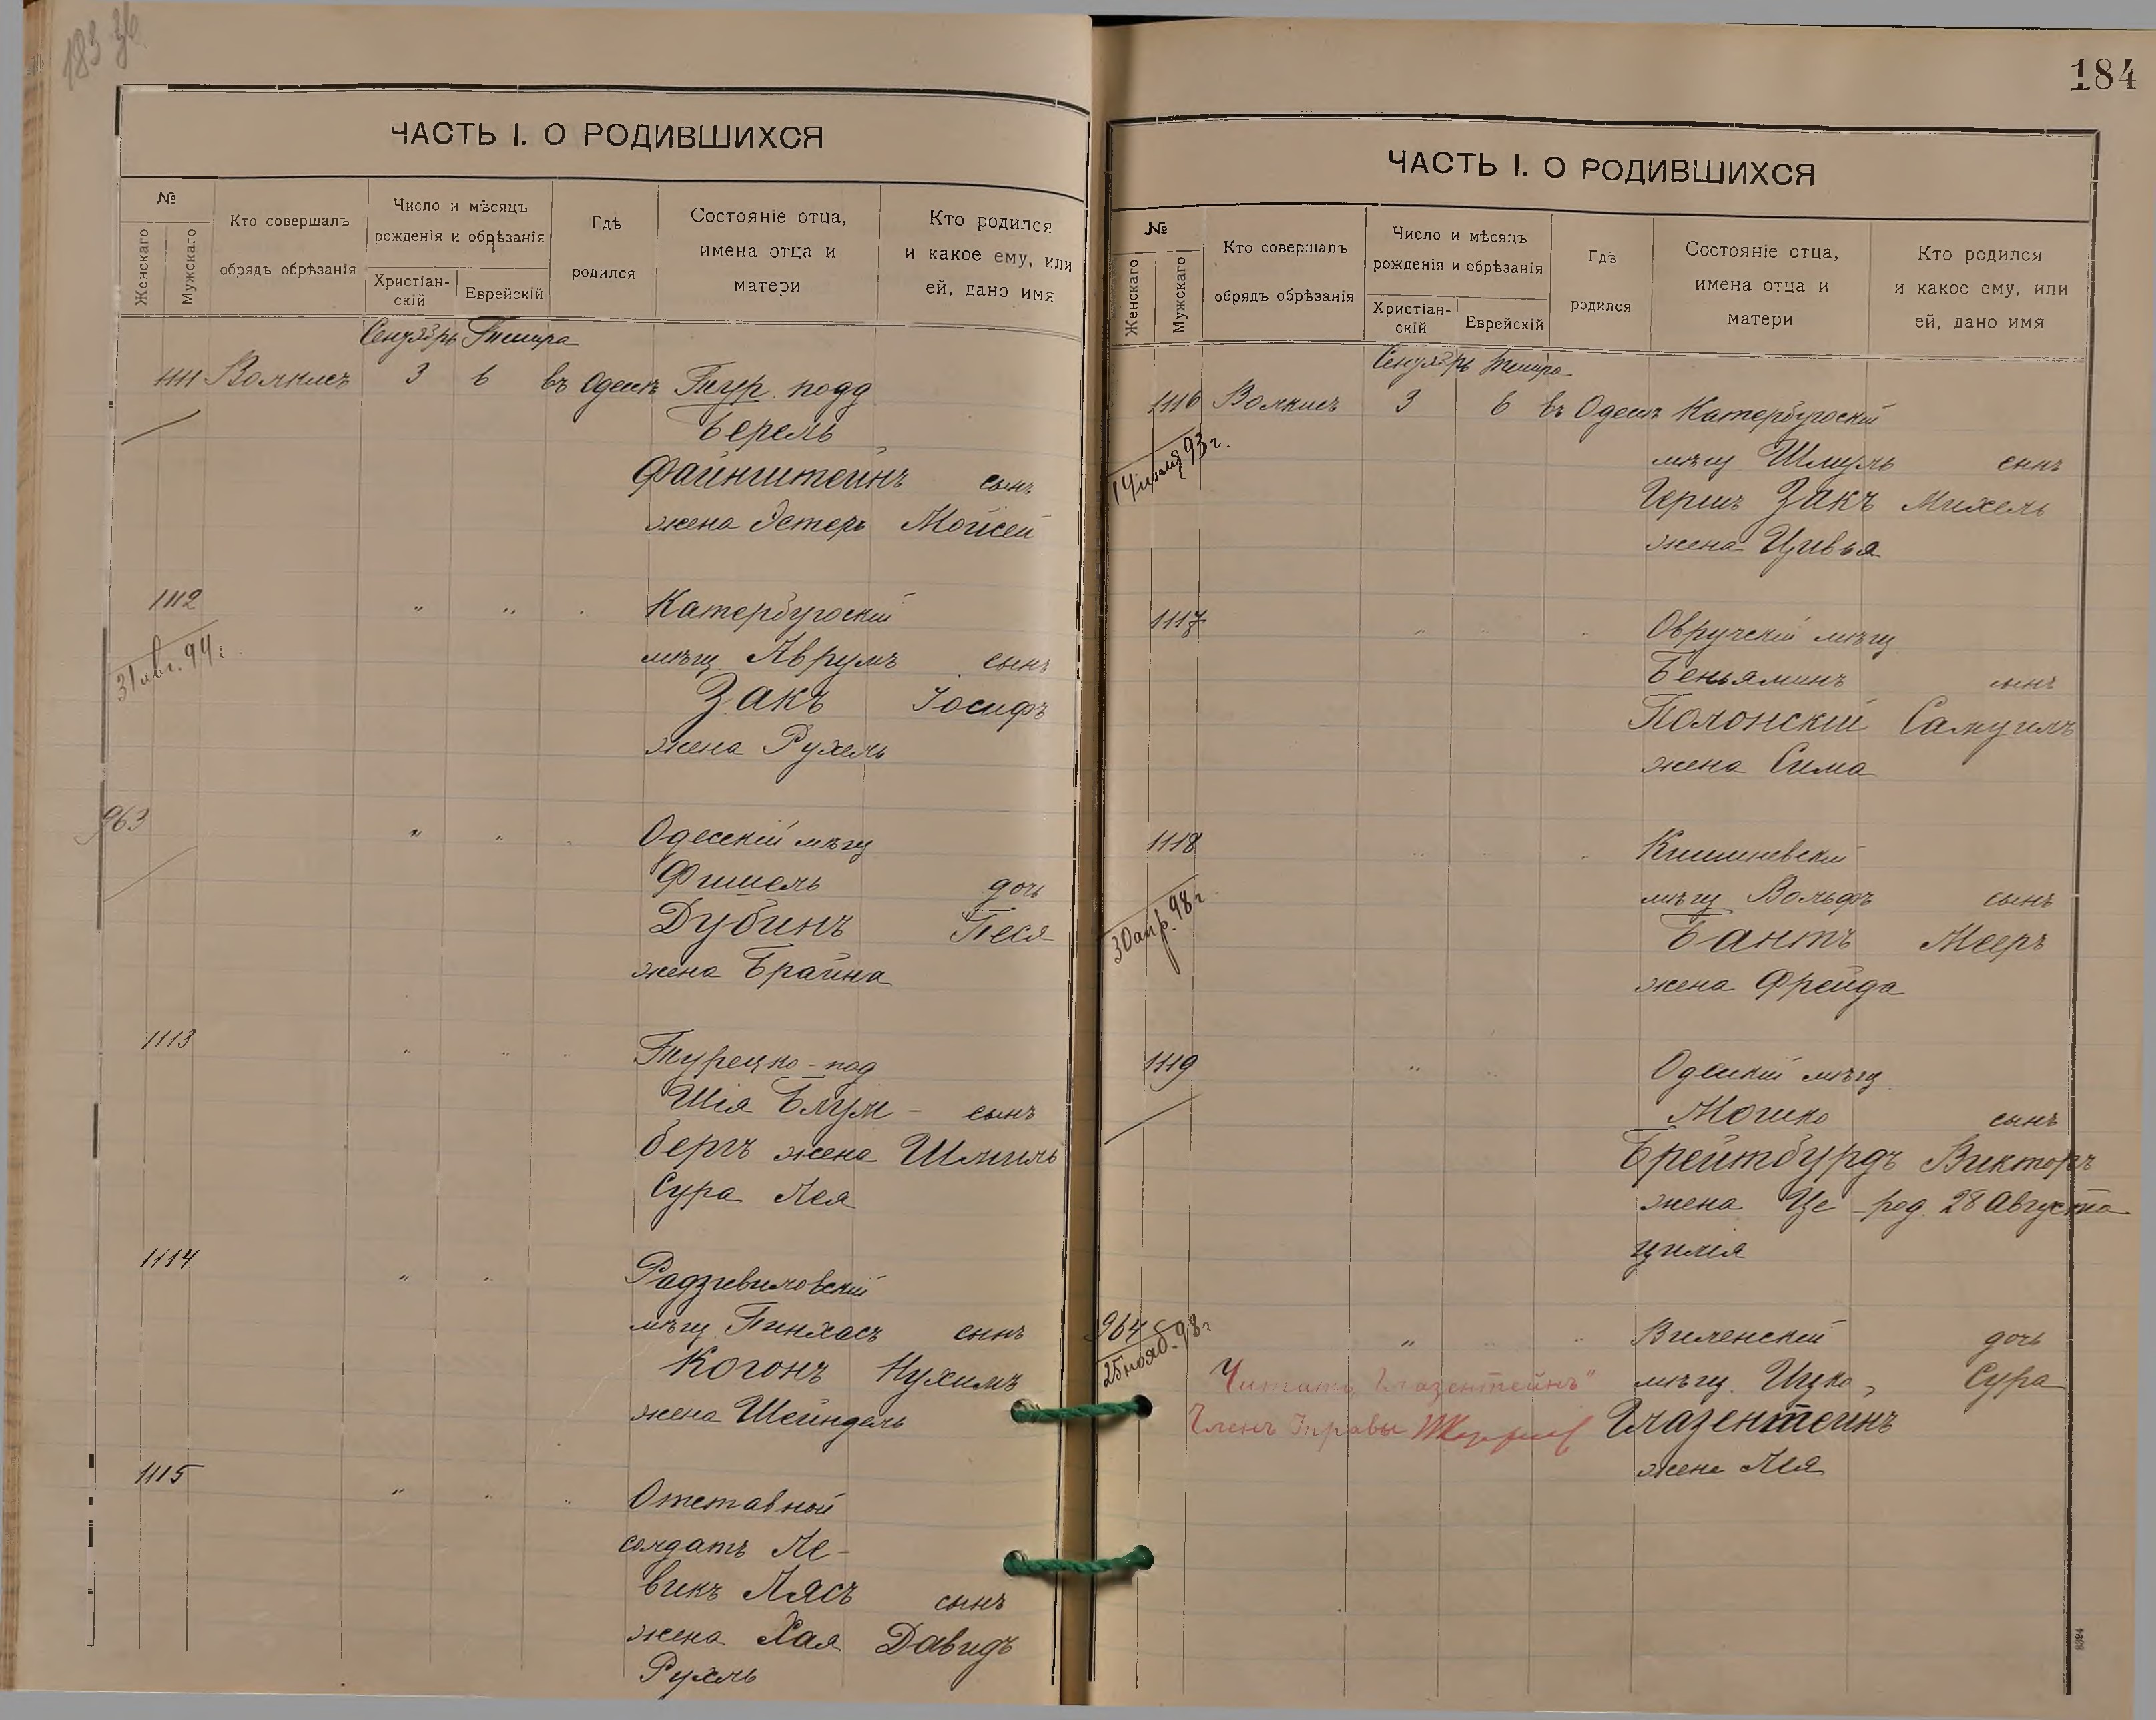 183 об
ЧАСТЬ I. О РОДИВШИХСЯ
№
Женскаго
Мужскаго
Кто совершалъ
обрядъ обрѣзанія
Число и мѣсяцъ
рожденія и обрѣзанія
Христіан-
скій
Еврейскій
Гдѣ
родился
Состояніе отца,
имена отца и
матери
Кто родился
и какое ему, или
ей, дано имя
Сентябрь Тишра
1111 Волкисъ 3 6 въ Одессѣ Тур. подд
Берель
Файнштейнъ сынъ
жена Эстеръ Мойсей
1112 " " " Катербургскій
31 авг. 94 г.
мѣщ. Аврумъ сынъ
Закъ Іосифъ
жена Рухель
963 " " " Одесскій мѣщ
Фишель дочь
Дубинъ Песя
жена Брайна
1113 " " " Турецко-под
Шія Блум- сынъ
бергъ жена Шмиль
Сура Лея
1114 " " Радзивиловскій
мѣщ. Пинхасъ сынъ
Когонъ Нухимъ
жена Шейндель
1115 " " " Отставной
солдатъ Ле-
викъ Лясъ сынъ
жена Хая Давидъ
Рухль
184
ЧАСТЬ I. О РОДИВШИХСЯ
№
Женскаго
Мужскаго
Кто совершалъ
обрядъ обрѣзанія
Число и мѣсяцъ
рожденія и обрѣзанія
Христіан-
скій
Еврейскій
Гдѣ
родился
Состояніе отца,
имена отца и
матери
Кто родился
и какое ему, или
ей, дано имя
Сентябрь Тишра
1116 Волкисъ 3 6 въ Одессѣ Катербургскій
93 г.
мѣщ Шмуль сынъ
Гершъ Закъ Михель
жена Цивья
1117 " " " Овручскій мѣщ
Беньяминъ сынъ
Полонскій Самуилъ
жена Сима
1118 " " " Кишиневскій
30 апр. 98 г
мѣщ Вольфъ сынъ
Бантъ Мееръ
жена Фрейда
1119 " " Одесскій мѣщ.
Мошко сынъ
Брейтбурдъ Викторъ
жена Це- род. 28 Августа
цилія
964 " " " Виленскій дочь
25 нояб. 98 г
Читать „Глазентейнъ" мѣщ. Ицко Сура
Членъ Управы Глазентейнъ
жена Лея
8394